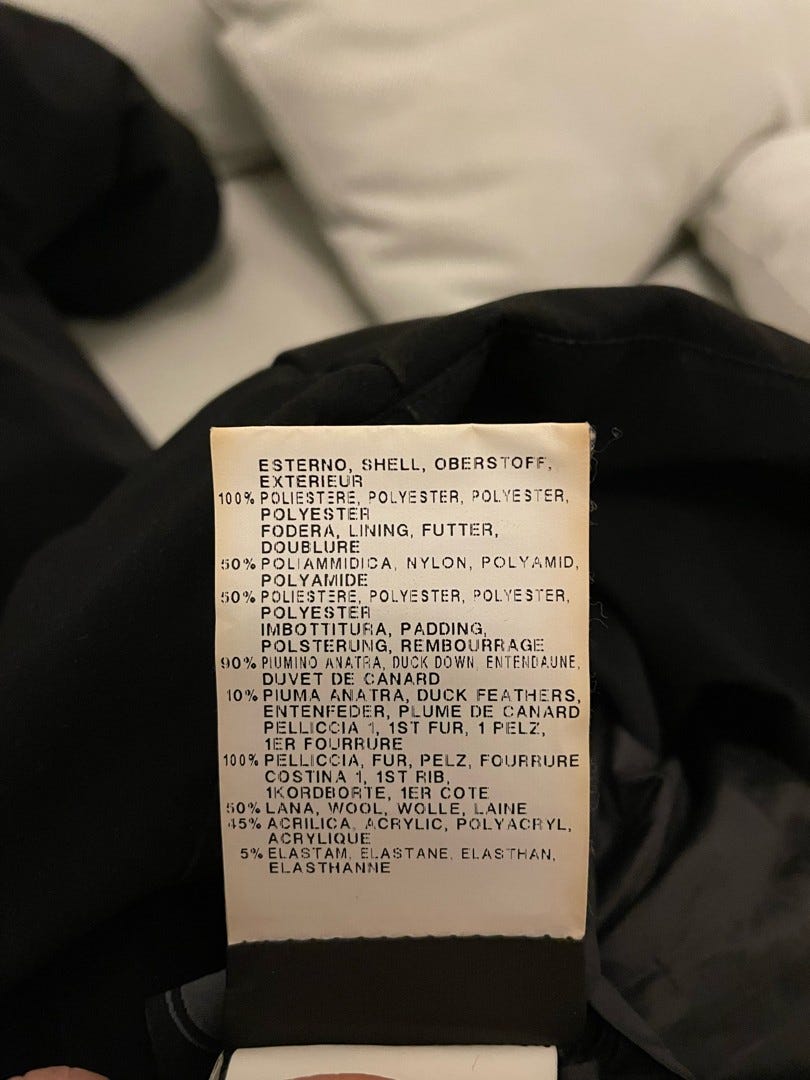 ESTERNO, SHELL, OBERSTOFF,
EXTERIEUR
100% POLIESTERE, POLYESTER, POLYESTER,
POLYESTER
FODERA, LINING, FUTTER,
DOUBLURE
50% POLIAMMIDICA, NYLON, POLYAMID,
POLYAMIDE
50% POLIESTERE, POLYESTER, POLYESTER,
POLYESTER
IMBOTTITURA, PADDING,
POLSTERUNG, REMBOURRAGE
90% PIUMINO ANATRA, DUCK DOWN, ENTENDAUNE,
DUVET DE CANARD
10% PIUMA ANATRA, DUCK FEATHERS,
ENTENFEDER, PLUME DE CANARD
PELLICCIA 1, 1ST FUR, 1 PELZ,
1ER FOURRURE
100% PELLICCIA, FUR, PELZ, FOURRURE
COSTINA 1, 1ST RIB,
1KORDBORTE, 1ER COTE
50% LANA, WOOL, WOLLE, LAINE
45% ACRILICA, ACRYLIC, POLYACRYL,
ACRYLIQUE
5% ELASTAM, ELASTANE, ELASTHAN,
ELASTHANNE